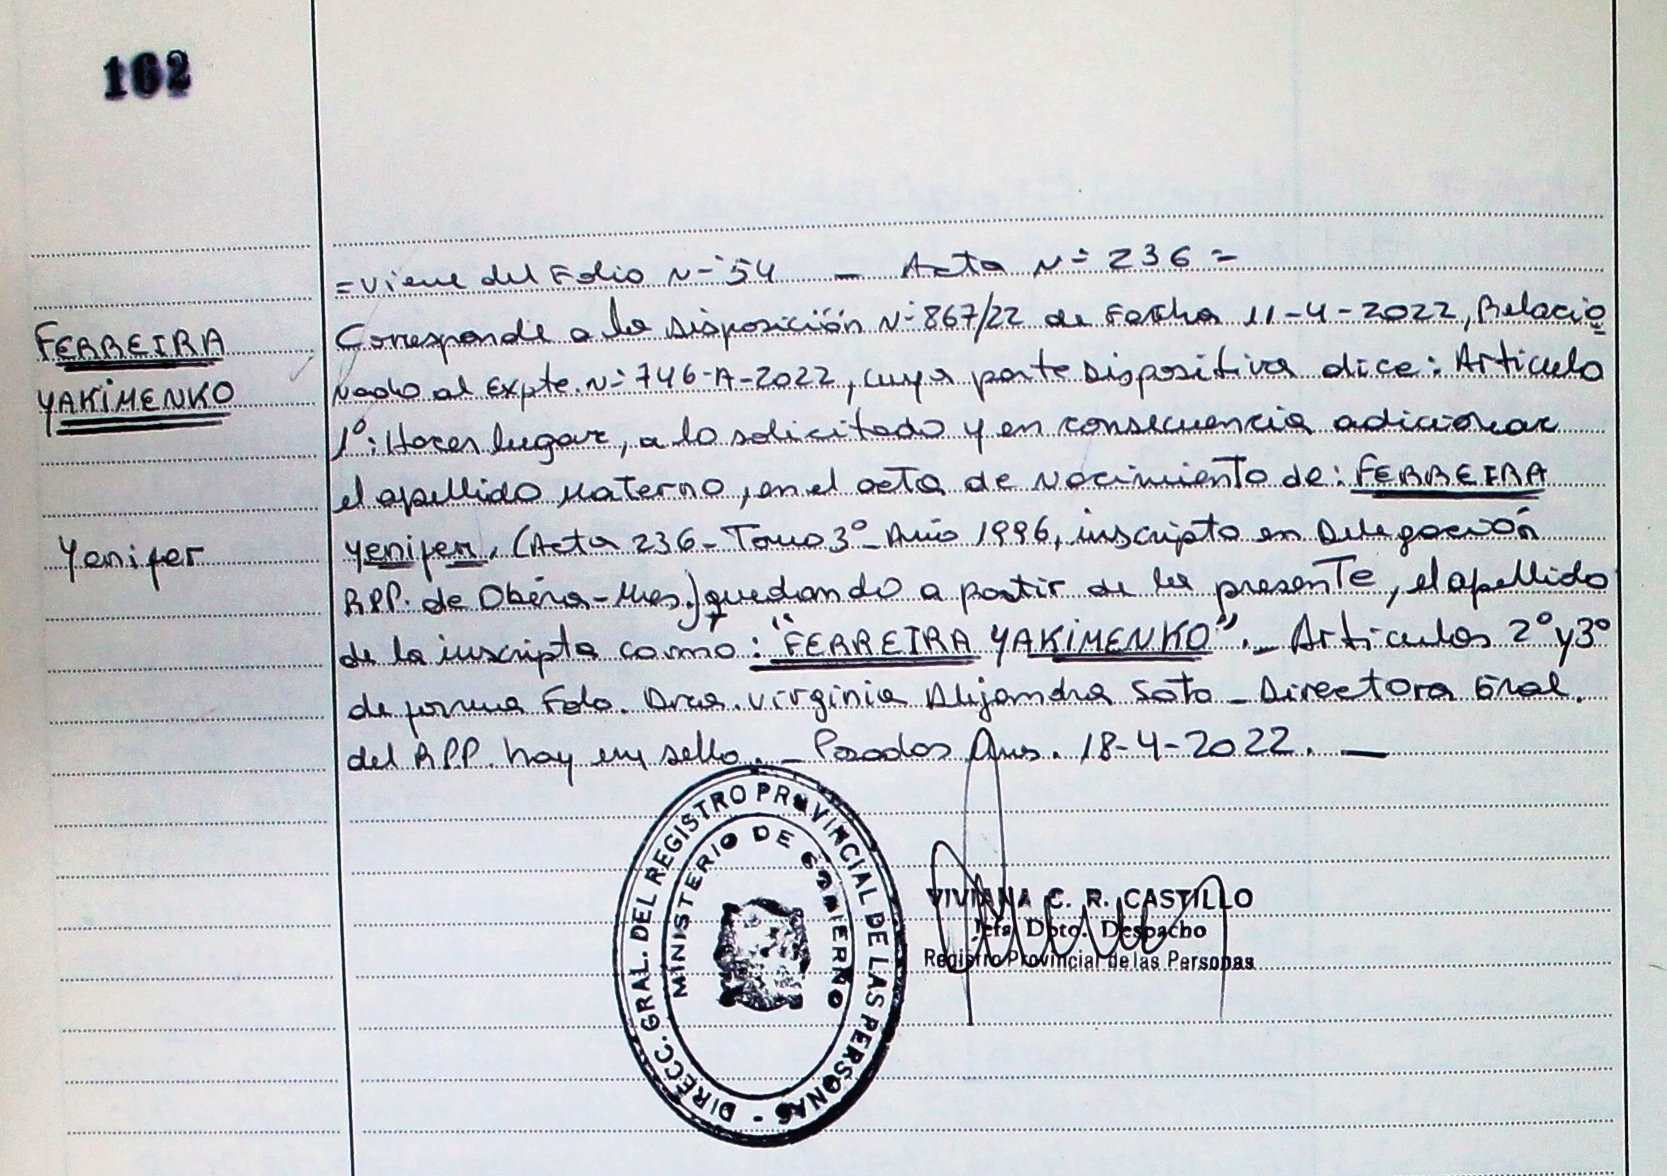 162
=Viene del Folio N-º 54 — Acta Nº 236=
FERREIRA
YAKIMENKO
Yenifer
Corresponde a la Disposición Nº 867/22 de Fecha 11-4-2022, Relacio
nado al Expte. Nº 746-A-2022, cuya parte Dispositiva dice: Articulo
1º: Hacer lugar, a lo solicitado y en consecuencia adicionar
el apellido materno, en el acta de nacimiento de: FERREIRA
Yenifer, (Acta 236-Tomo 3º-Año 1996, inscripta en Delegación
RPP. de Oberá-Mnes.) quedando a partir de la presente, el apellido
de la inscripta como: "FERREIRA YAKIMENKO". _ Articulos 2º y 3º
de forma Fdo. Dra. Virginia Alejandra Soto _ Directora Gral.
del RPP. hay un sello. _ Posadas Mns. 18-4-2022. —
DIRECC. GRAL. DEL REGISTRO PROVINCIAL DE LAS PERSONAS -
MINISTERIO DE GOBIERNO
VIVIANA C. R. CASTILLO
Jefa Dpto. Despacho
Registro Provincial de las Personas